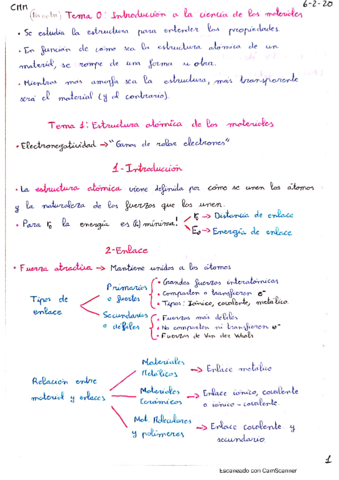 CMM
6-2-20
Tema 0: Introducción a la ciencia de los materiales
• Se estudia la estructura para entender las propiedades.
• En función de cómo sea la estructura atómica de un
material, se rompe de una forma u otra.
• Mientras más amorfa sea la estructura, más transparente
será el material (y al contrario).
Tema 1: Estructura atómica de los materiales
• Electronegatividad → "Ganas de robar electrones"
1-Introducción
• La estructura atómica viene definida por cómo se unen los átomos
y la naturaleza de las fuerzas que los unen.
• Para r₀ la energía es mínima!
r₀ → Distancia de enlace
E₀ → Energía de enlace
2-Enlace
• Fuerza atractiva → Mantiene unidos a los átomos
Tipos de enlace
Primarios o fuertes
• Grandes fuerzas interatómicas
• Comparten o transfieren e⁻
• Tipos: Iónico, covalente, metálico.
Secundarios o débiles
• Fuerzas más débiles
• No comparten ni transfieren e⁻
• Fuerzas de Van der Waals
Relación entre material y enlaces
Materiales Metálicos → Enlace metálico
Materiales Cerámicos → Enlace iónico, covalente
o iónico-covalente.
Mat. Hidratados y polímeros → Enlace covalente y
secundario.
1
Escaneado con CamScanner